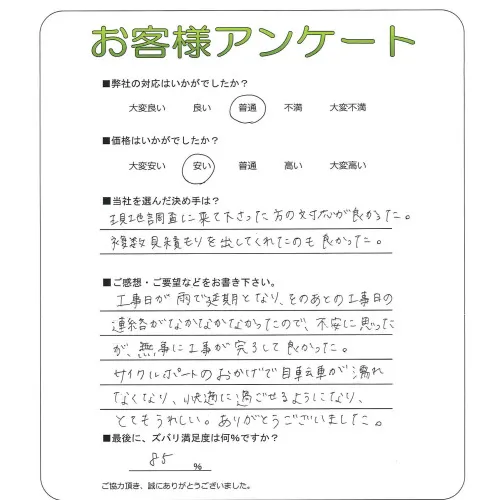 お客様アンケート
■弊社の対応はいかがでしたか？
大変良い　良い　普通　不満　大変不満
■価格はいかがでしたか？
大変安い　安い　普通　高い　大変高い
■当社を選んだ決め手は？
現地調査に来て下さった方の対応が良かった。
複数見積もりを出してくれたのも良かった。
■ご感想・ご要望などをお書き下さい。
工事日が雨で延期となり、そのあとの工事日の
連絡がなかなかなかったので、不安に思った
が、無事に工事が完了して良かった。
サイクルポートのおかげで自転車が濡れ
なくなり、快適に過ごせるようになり、
とてもうれしい。ありがとうございました。
■最後に、ズバリ満足度は何%ですか？
85 %
ご協力頂き、誠にありがとうございました。